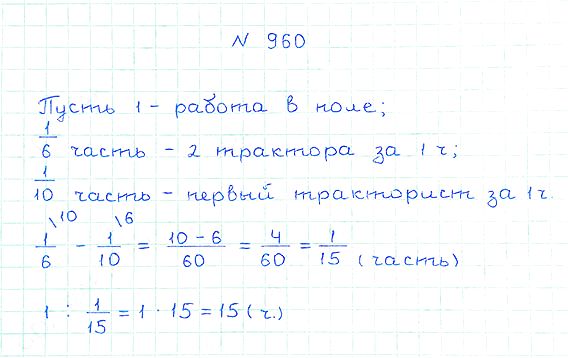 N 960
Пусть 1 - работа в поле;
1/6 часть - 2 трактора за 1 ч;
1/10 часть - первый тракторист за 1 ч.
1\10/6 - 1\6/10 = 10-6/60 = 4/60 = 1/15 (часть)
1 : 1/15 = 1 · 15 = 15 (ч.)